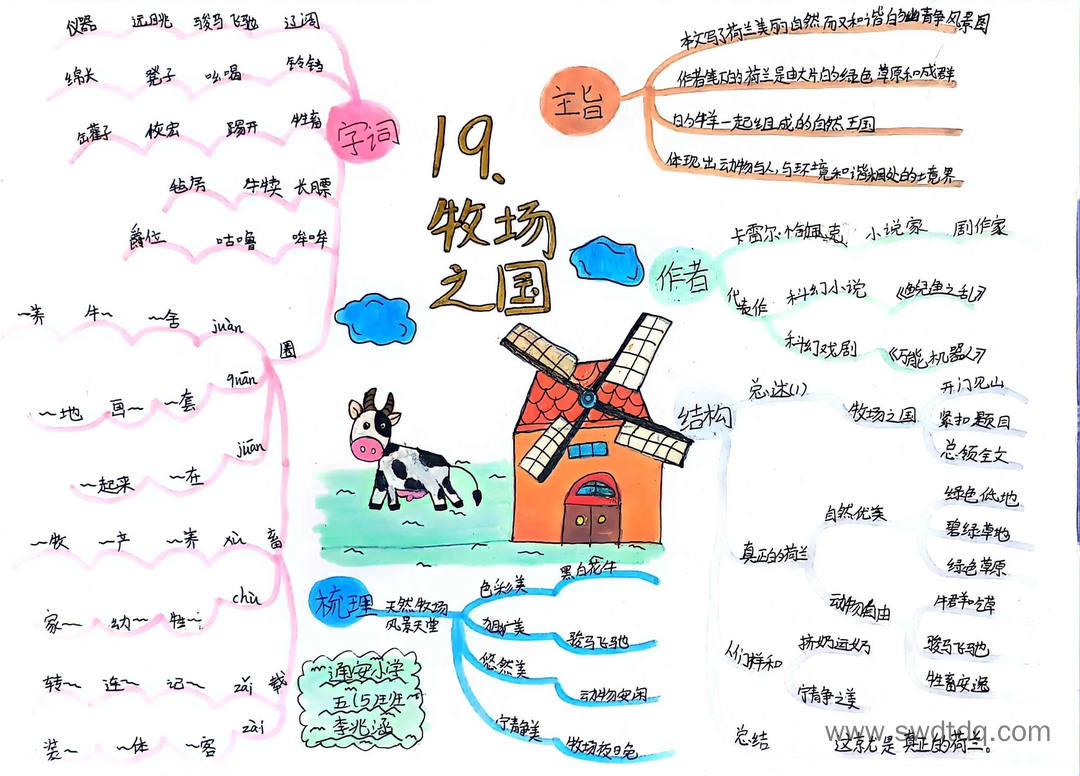 19、
牧场
之国
字词
仪器 远眺 骏马飞驰 辽阔
绵长 凳子 吆喝 铃铛
罐子 牲畜
毡房 牛犊 长膘
爵位 咕噜 哞哞
圈
~养 牛~ ~舍 juàn
~地 画~ ~套 quān
~起来 ~在 juān
畜
~牧 ~产 ~养 xù
家~ 幼~ 牲~ chù
载
转~ 连~ 记~ zǎi
装~ ~体 ~客 zài
主旨
本文写了荷兰美丽自然而又和谐的幽静风景图
作者笔下的荷兰是由大片的绿色草原和成群
的牛羊一起组成的自然王国
体现出动物与人,与环境和谐相处的
作者
卡雷尔·恰佩克 小说家 剧作家
代表作
科幻小说 《鲵鱼之乱》
科幻戏剧 《万能机器人》
结构
总述(1) 牧场之国
开门见山
紧扣题目
总领全文
真正的荷兰
自然优美
绿色低地
碧绿草地
绿色草原
动物自由
骏马飞驰
牲畜安逸
人们祥和
挤奶运奶
宁静之美
总结 这就是真正的荷兰。
梳理
天然牧场
风景天堂
色彩美 黑白花牛
粗犷美 骏马飞驰
悠然美 动物安闲
宁静美 牧场夜色
通安小学
五(5)班
李兆涵
www.swdtdq.com